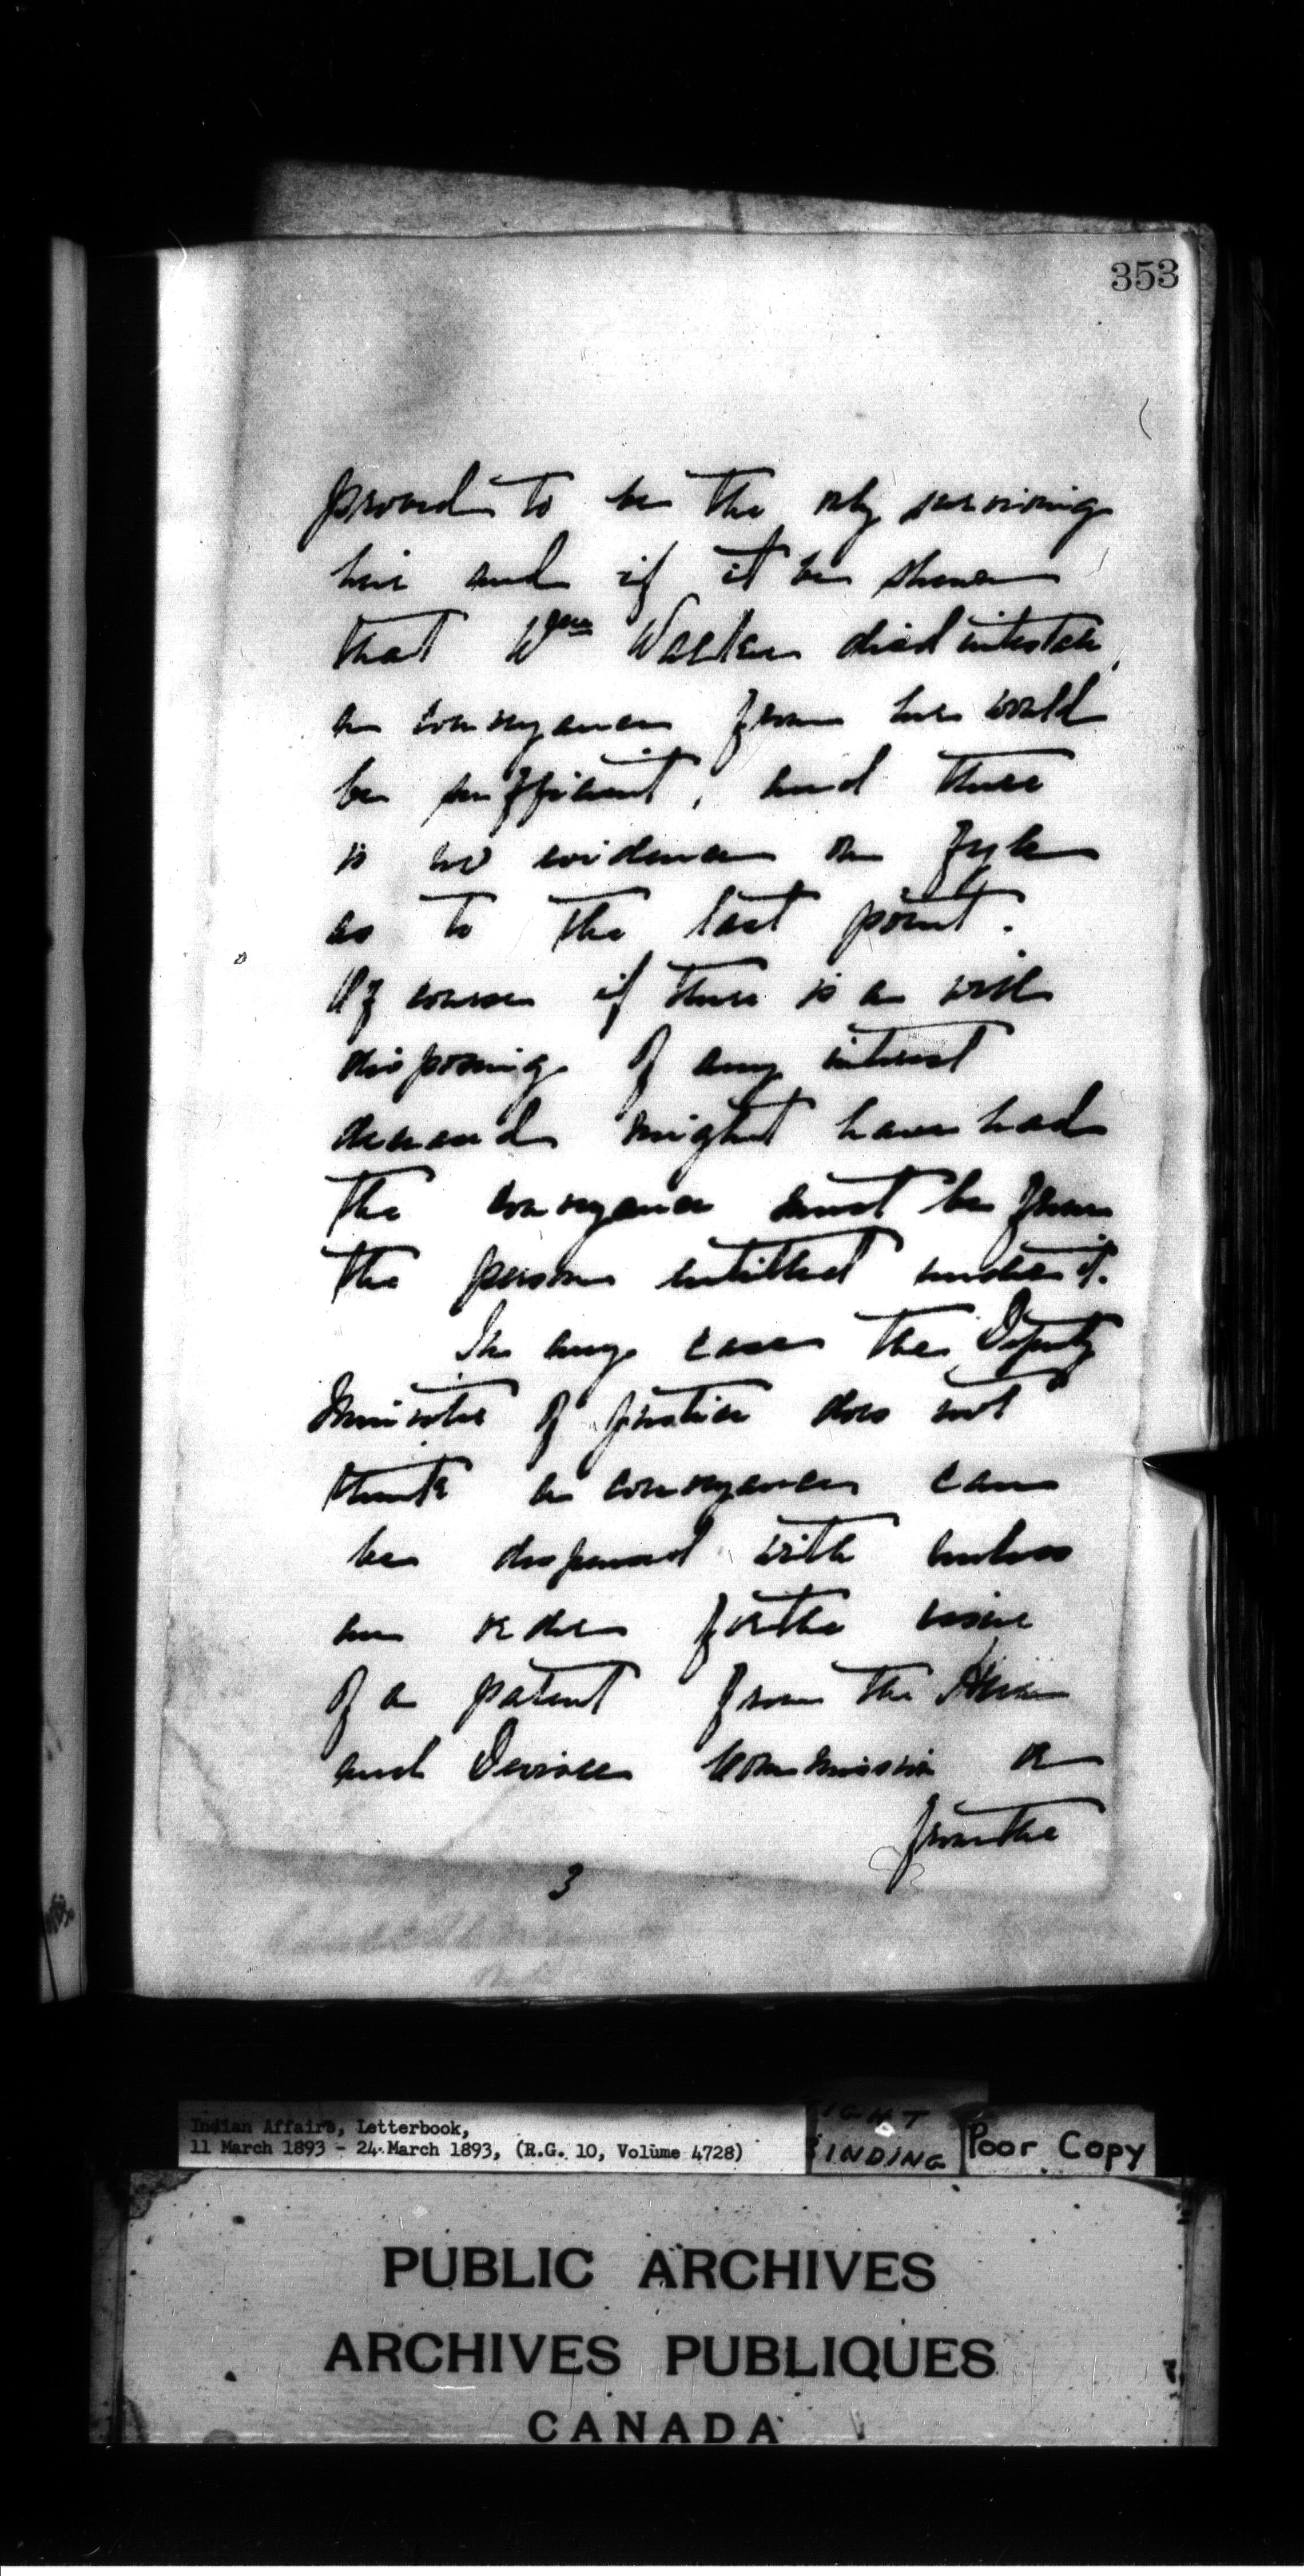 353
proved to be the only surviving
heir and if it be shown
that Wm Walker died intestate,
a conveyance from her would
be sufficient, and there
is no evidence on fyle
as to the last point.
Of course if there is a will
disposing of any interest
deceased might have had
the conveyance must be from
the person entitled under it.
In any case the Deputy
Minister of Justice does not
think a conveyance can
be dispensed with unless
an order for the issue
of a patent from the Heir
and Devisee Commission or
from the
3
Indian Affairs, Letterbook,
11 March 1893 - 24 March 1893, (R.G. 10, Volume 4728)
INDING
Poor Copy
PUBLIC ARCHIVES
ARCHIVES PUBLIQUES
CANADA